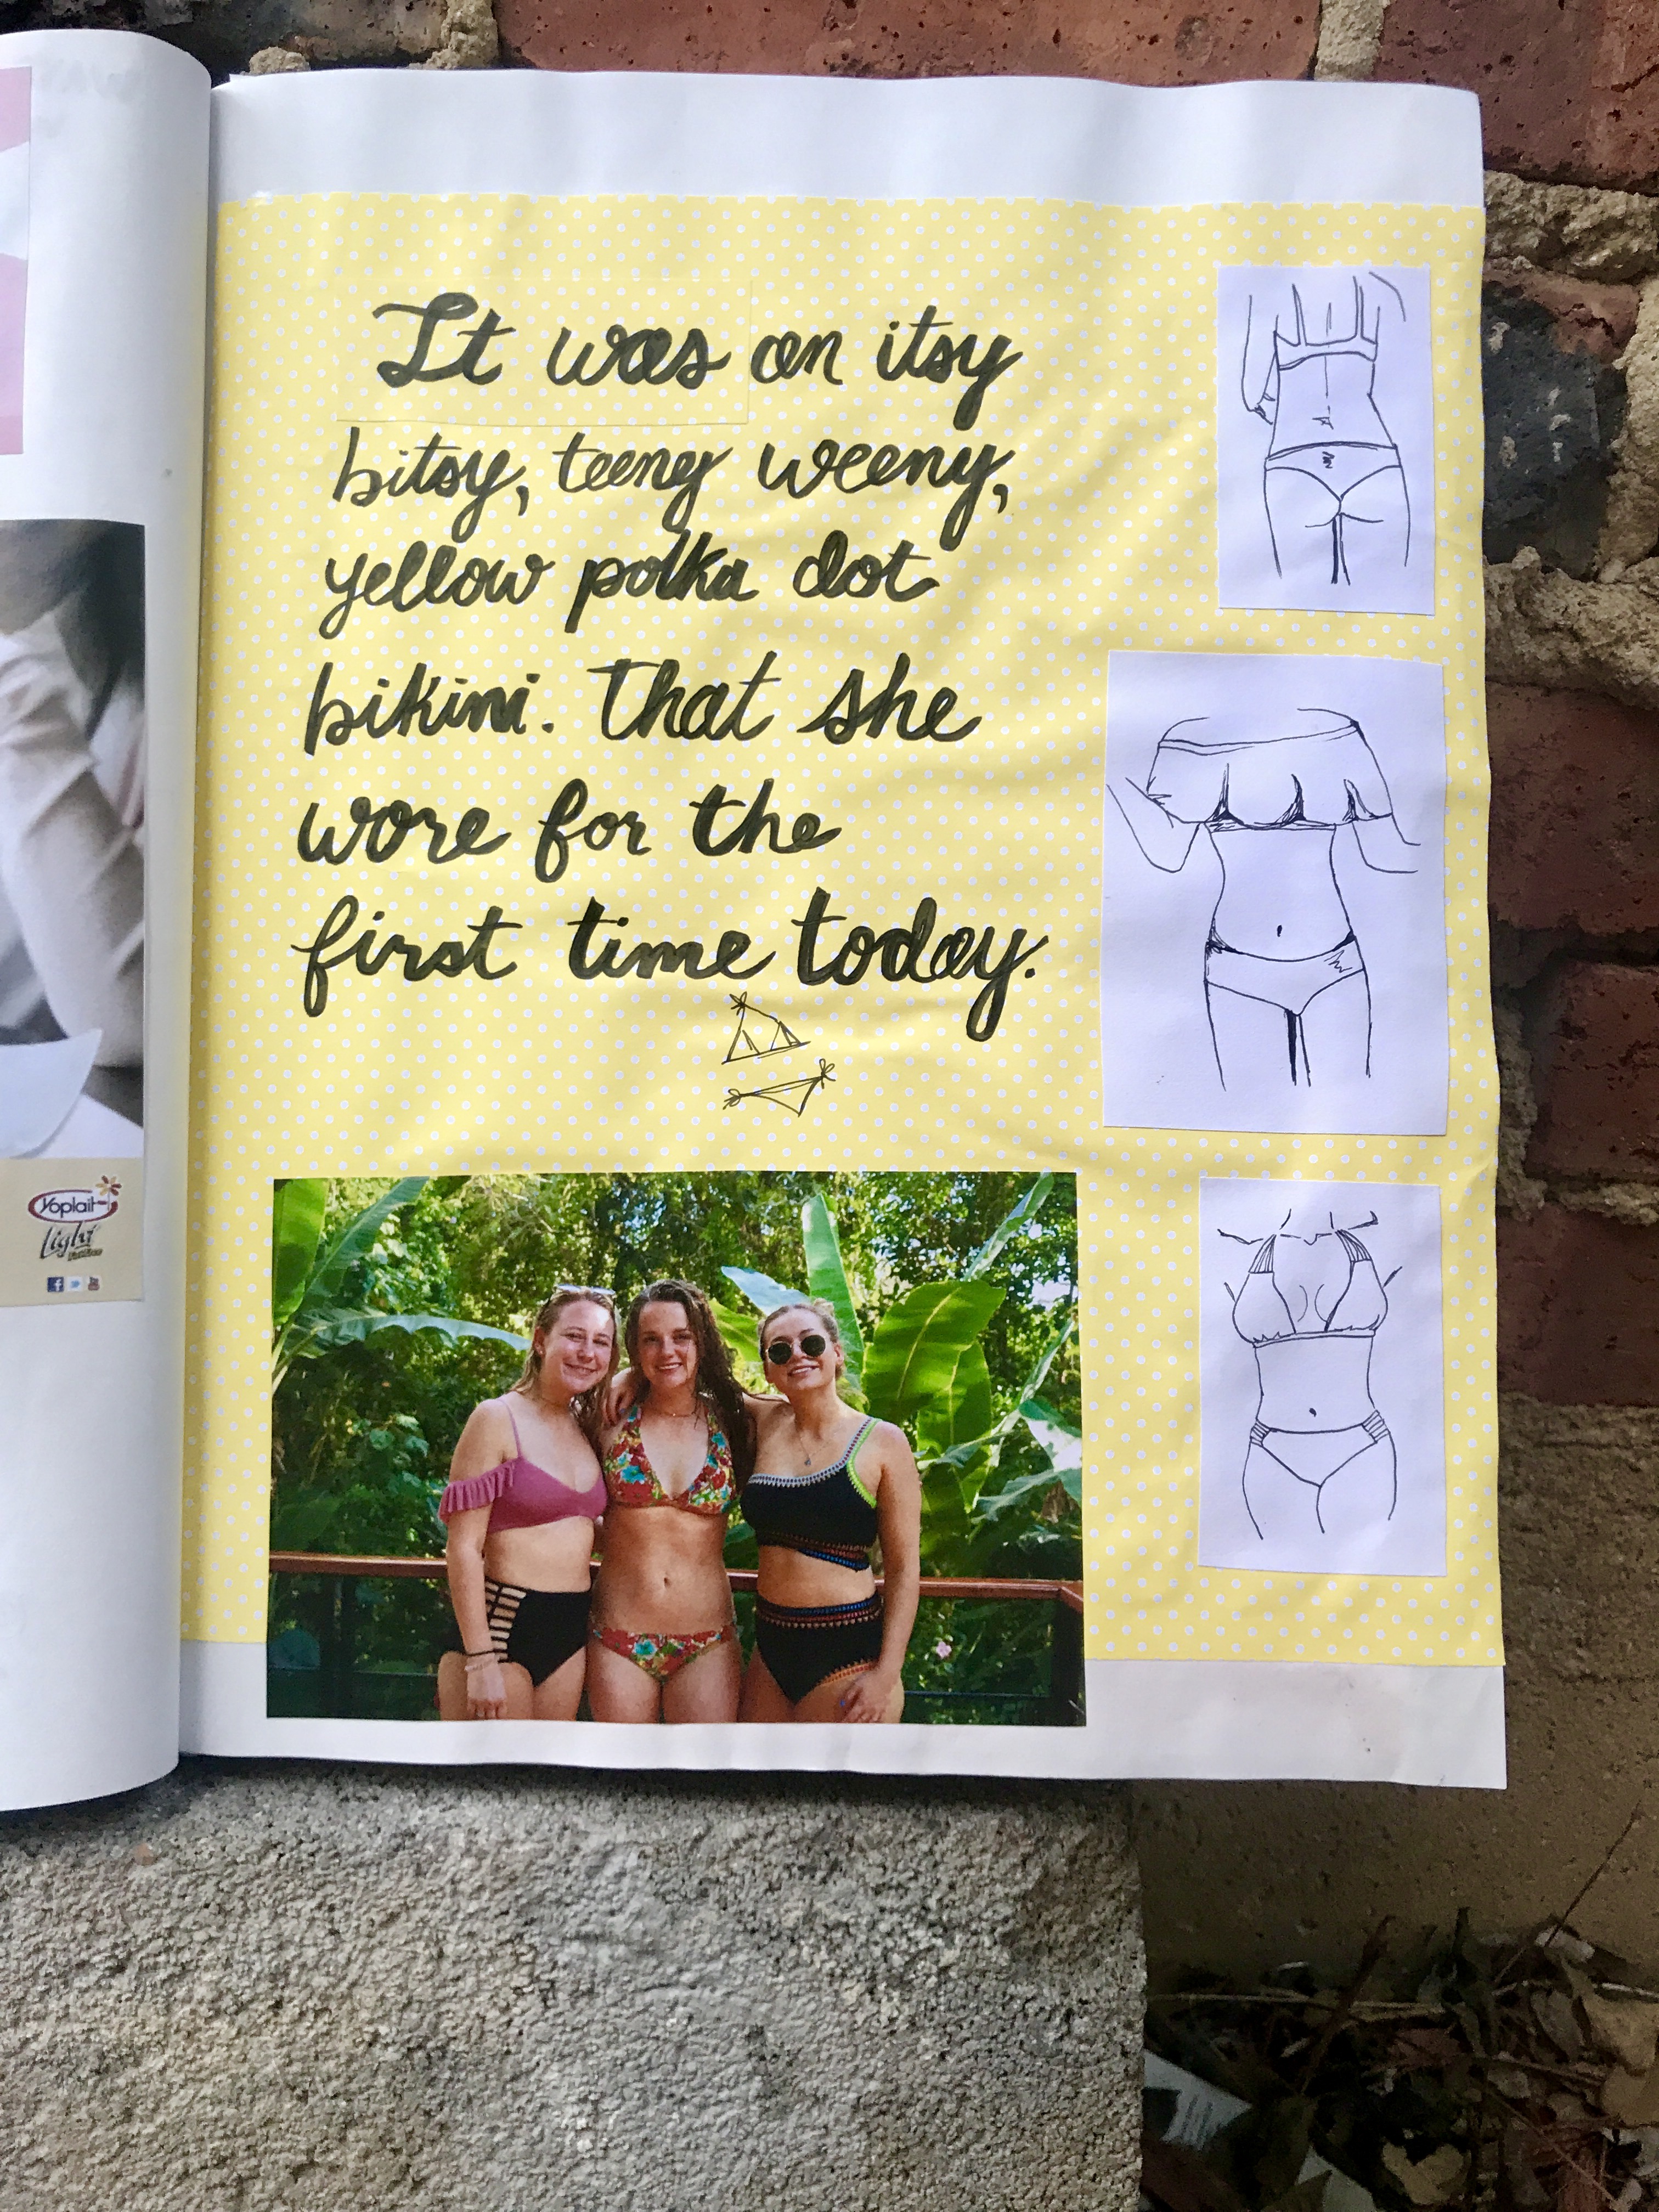 It was an itsy
bitsy, teeny weeny,
yellow polka dot
bikini. That she
wore for the
first time today.
Yoplait
Light